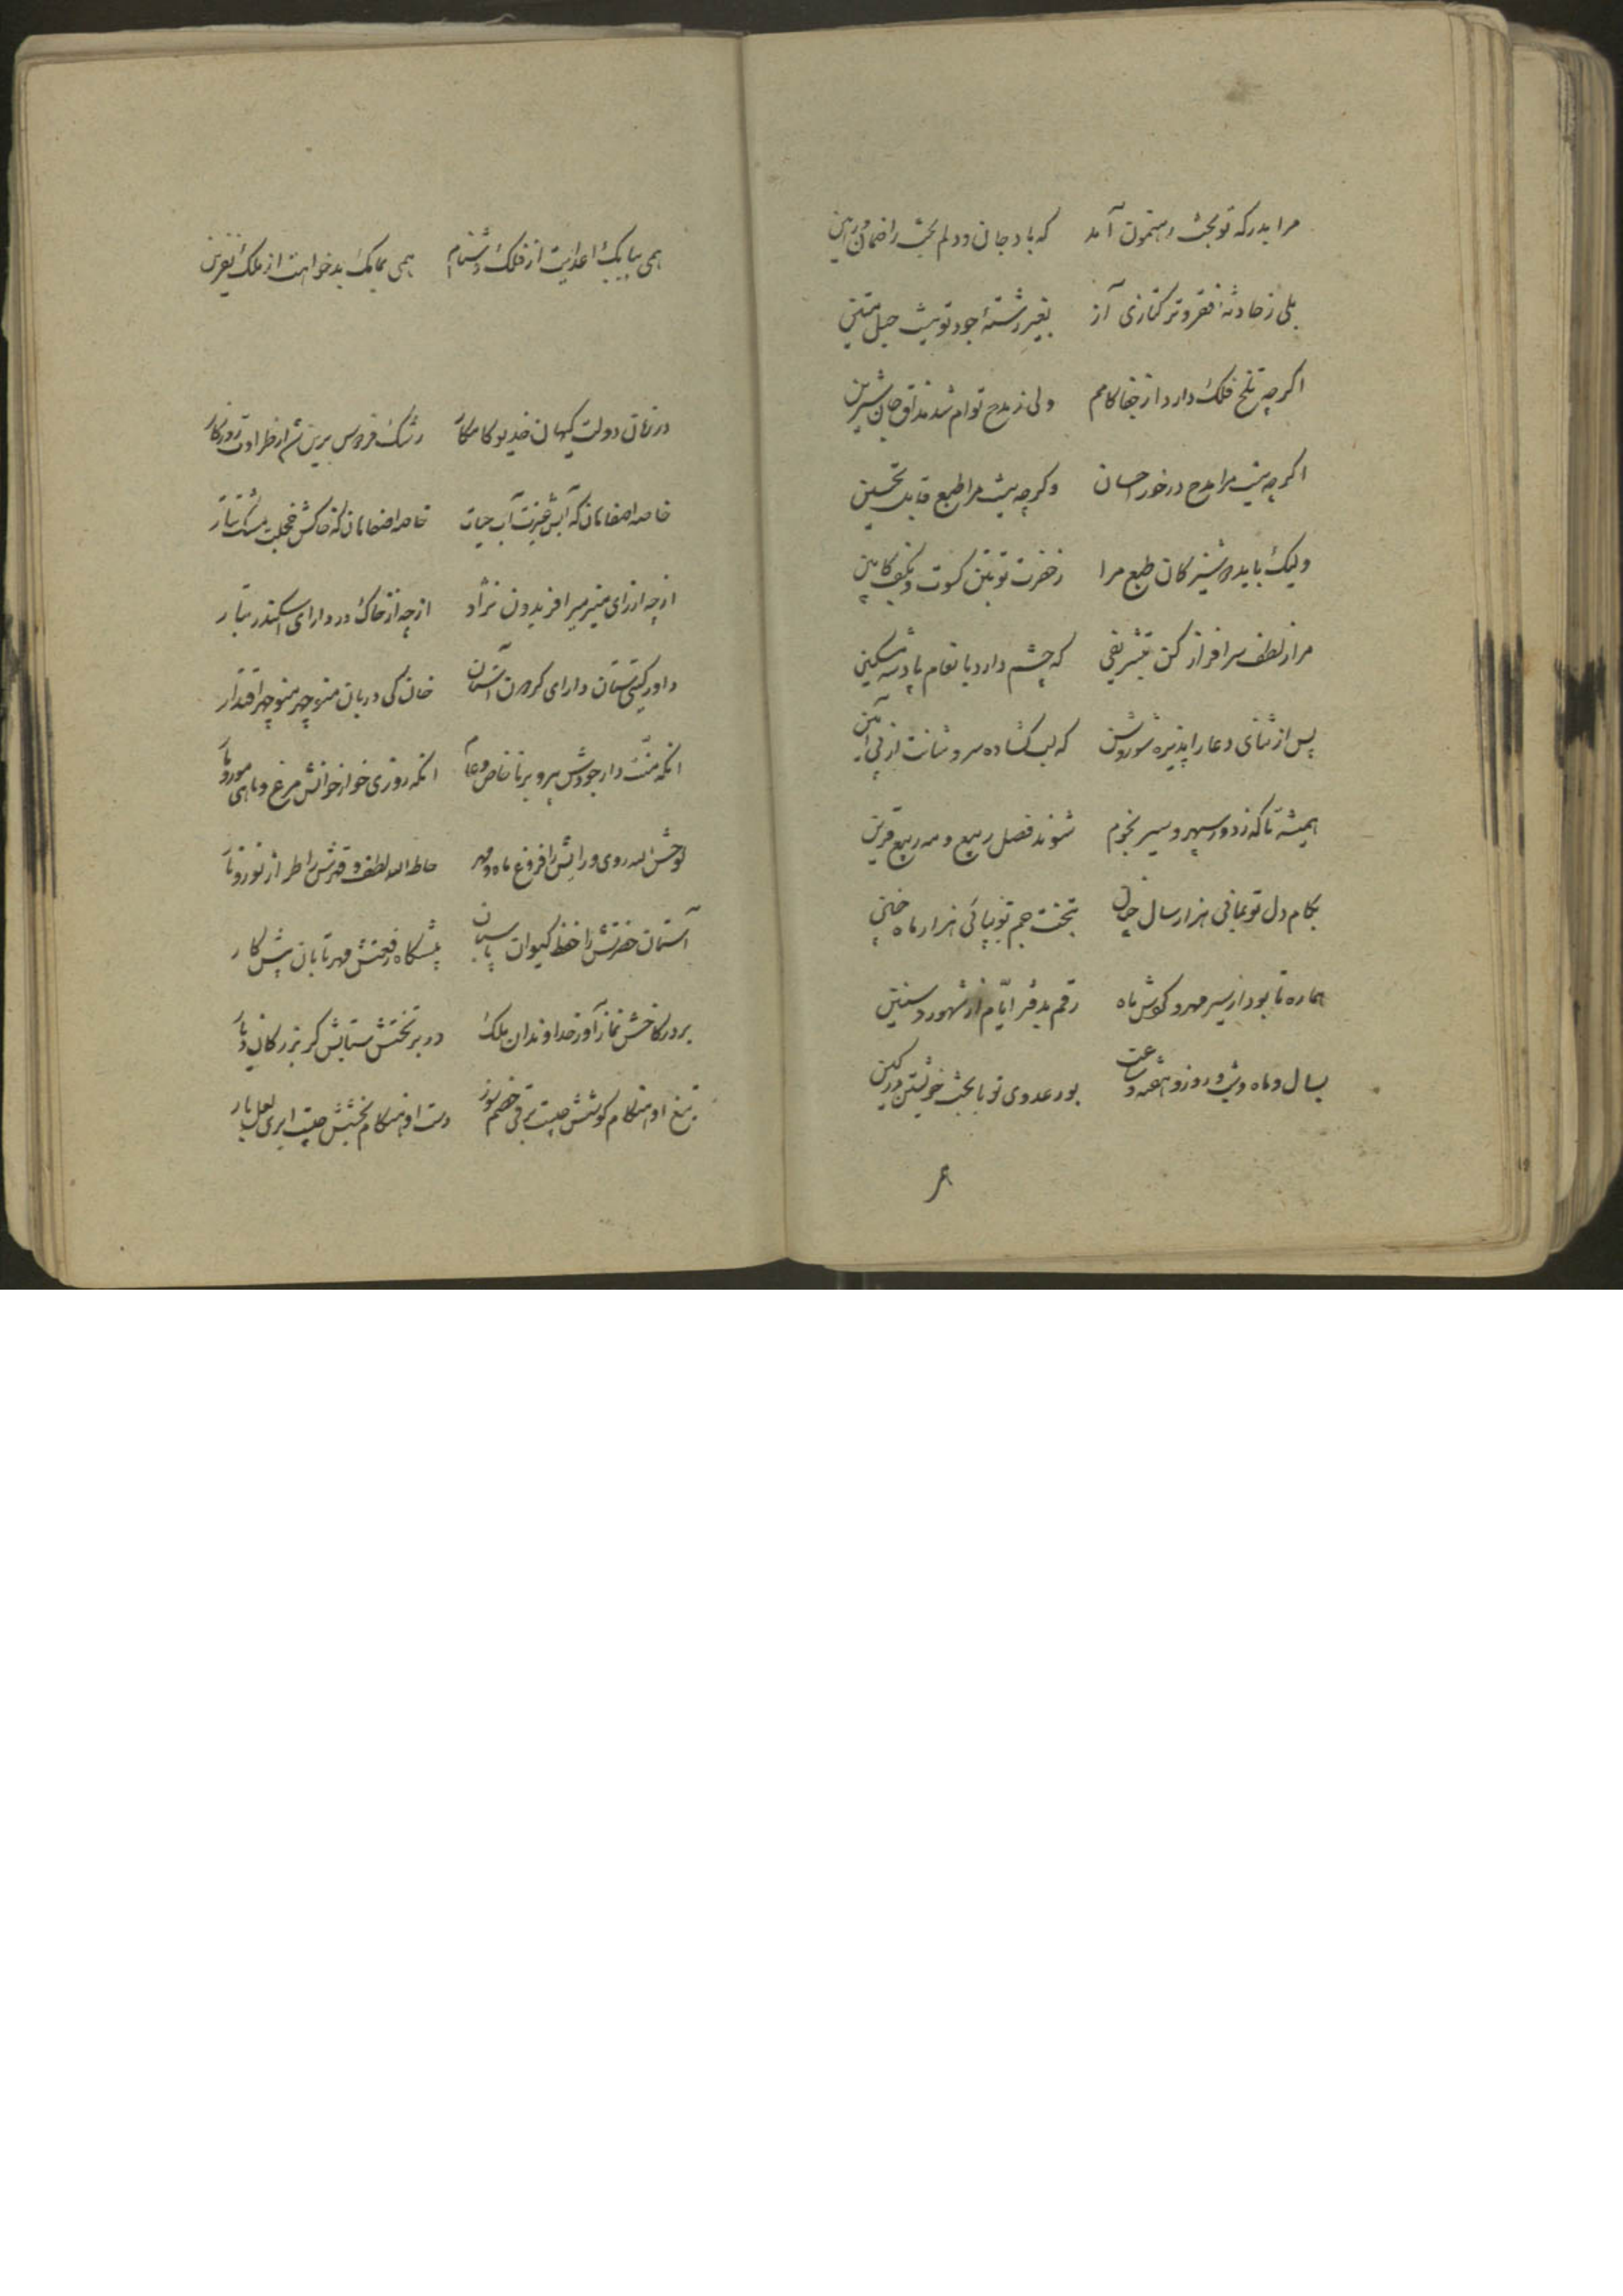 مرا بدرکه تو بخت رهنمون آمد که باد جان و دلم بخت را ضمان و رهین
بلی ز حادثهٔ فقر و ترکتازی آز بغیر رشتهٔ جود تو نیست حبل متین
اکرچه تلخ فلک دارد از جفا کامم ولی ز مدح توام شد مذاق جان شیرین
اکرچه نیست مرا مدح درخور احسان وکرچه نیست مرا طبع قابل تحسین
ولیک باید دوشیزکان طبع مرا ز حضرت تو بتن کسوت و بکف کابین
مرا ز لطف سرافراز کن بتشریفی که چشم دارد بانعام پادشه مسکین
پس از ثنای دعا را پذیره شو سروش که لب کشاده سروشانت از پی آمین
همیشه تا که ز دور سپهر و سیر نجوم شوند فصل ربیع و مه ربیع قرین
بکام دل تو بمانی هزار سال چنان بتخت جم تو بپائی هزار ماه چنین
هماره تا بود از سیر مهر و کوشش ماه رقم بدفتر ایّام از شهور و سنین
بسال و ماه و شب و روز و هفته و ساعت بود عدوی تو با بخت خویشتن در کین
همی بیابک اعدایت از فلک دشنام همی بمابک بدخواهت از ملک نفرین
در زمان دولت کیهان خدیو کامکار رشک فردوس برین شد از طراوت روزکار
خاصه اصفاهان که آبش غیرت آب حیات خاصه اصفاهان که خاکش خجلت مشک تتار
از چه از رای منیر میر افریدون نژاد از چه از خاک در دارای اسکندر تبار
داور کیتی ستان دارای کردون آستان خان کی دربان منوچهر منوچهر اقتدار
انکه منّت دار جودش پیر و برنا خاص و عام انکه روزی خوار خوانش مرغ و ماهی مور و مار
لوحش الله روی و رایش را فروغ ماه و مهر حاط الله لطف و قهرش را طراز نور و نار
آستان حضرتش را حفظ کیوان پاسبان پیشکاه رفعتش مهر تابان پیش کار
بر در کاخش نماز آور خداوندان ملک در بر تختش ستایش کر بزرکان دیار
تیغ او هنکام کوشش چیست برقی خصم سوز دست او هنکام بخشش چیست ابری لعل بار